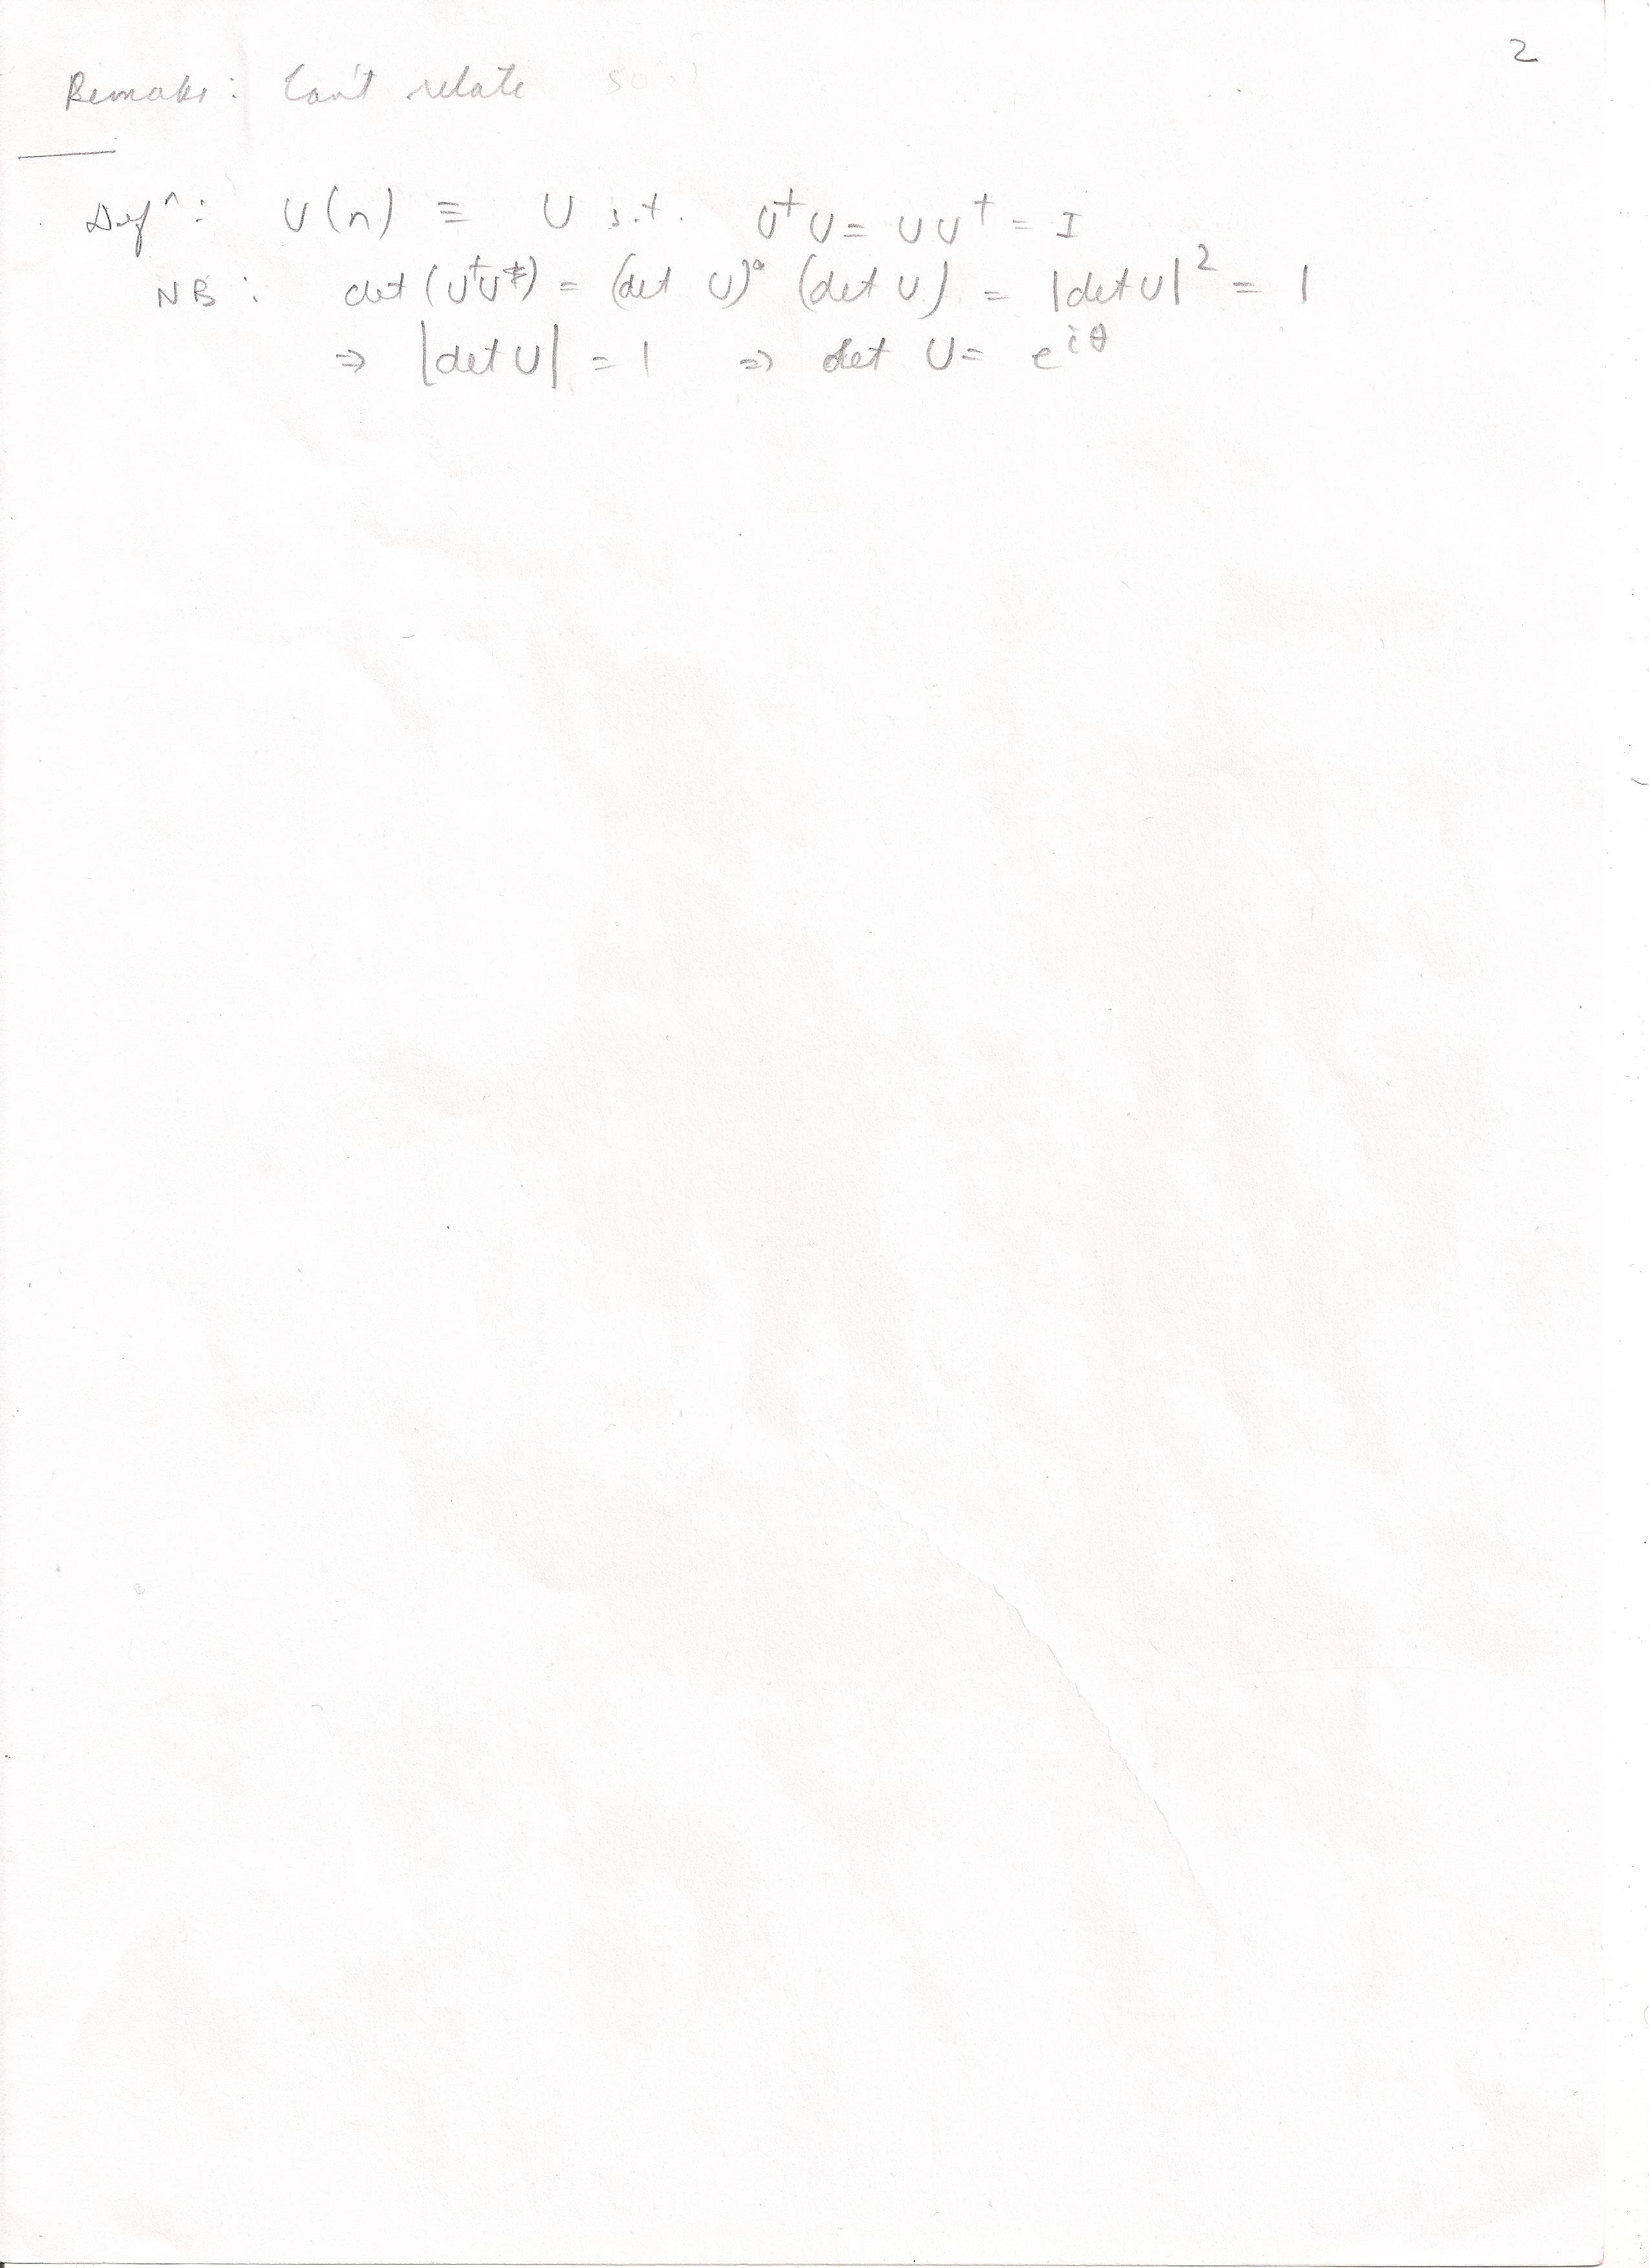 2
Remarks: Can't relate
Defⁿ: U(n) ≡ U s.t. U†U = UU† = I
NB: det (U†U) = (det U)* (det U) = |det U|² = 1
⇒ |det U| = 1 ⇒ det U = e^{iθ}